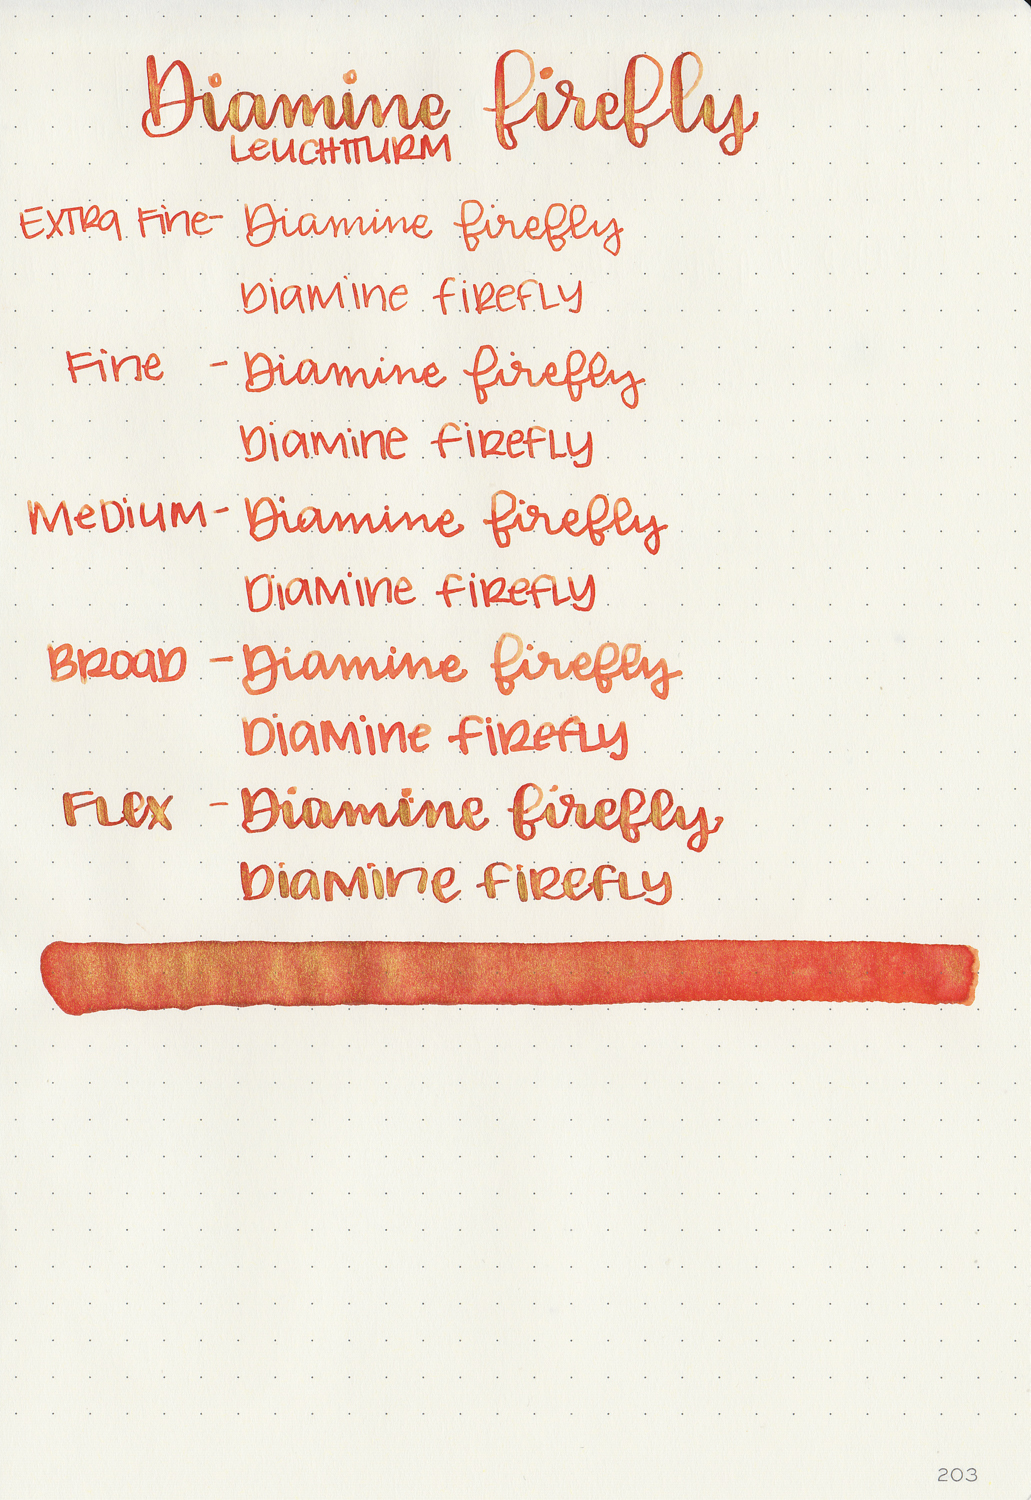 Diamine firefly
LEUCHTTURM
EXTRA Fine- Diamine firefly
DiaMine fiREFLY
Fine - Diamine firefly
DiaMine fiREFLY
MeDiUM- Diamine firefly
DiaMine fiREFLY
BROAD - Diamine firefly
DiaMine fiREFLY
FLex - Diamine firefly
DiaMine fiREFLY
203